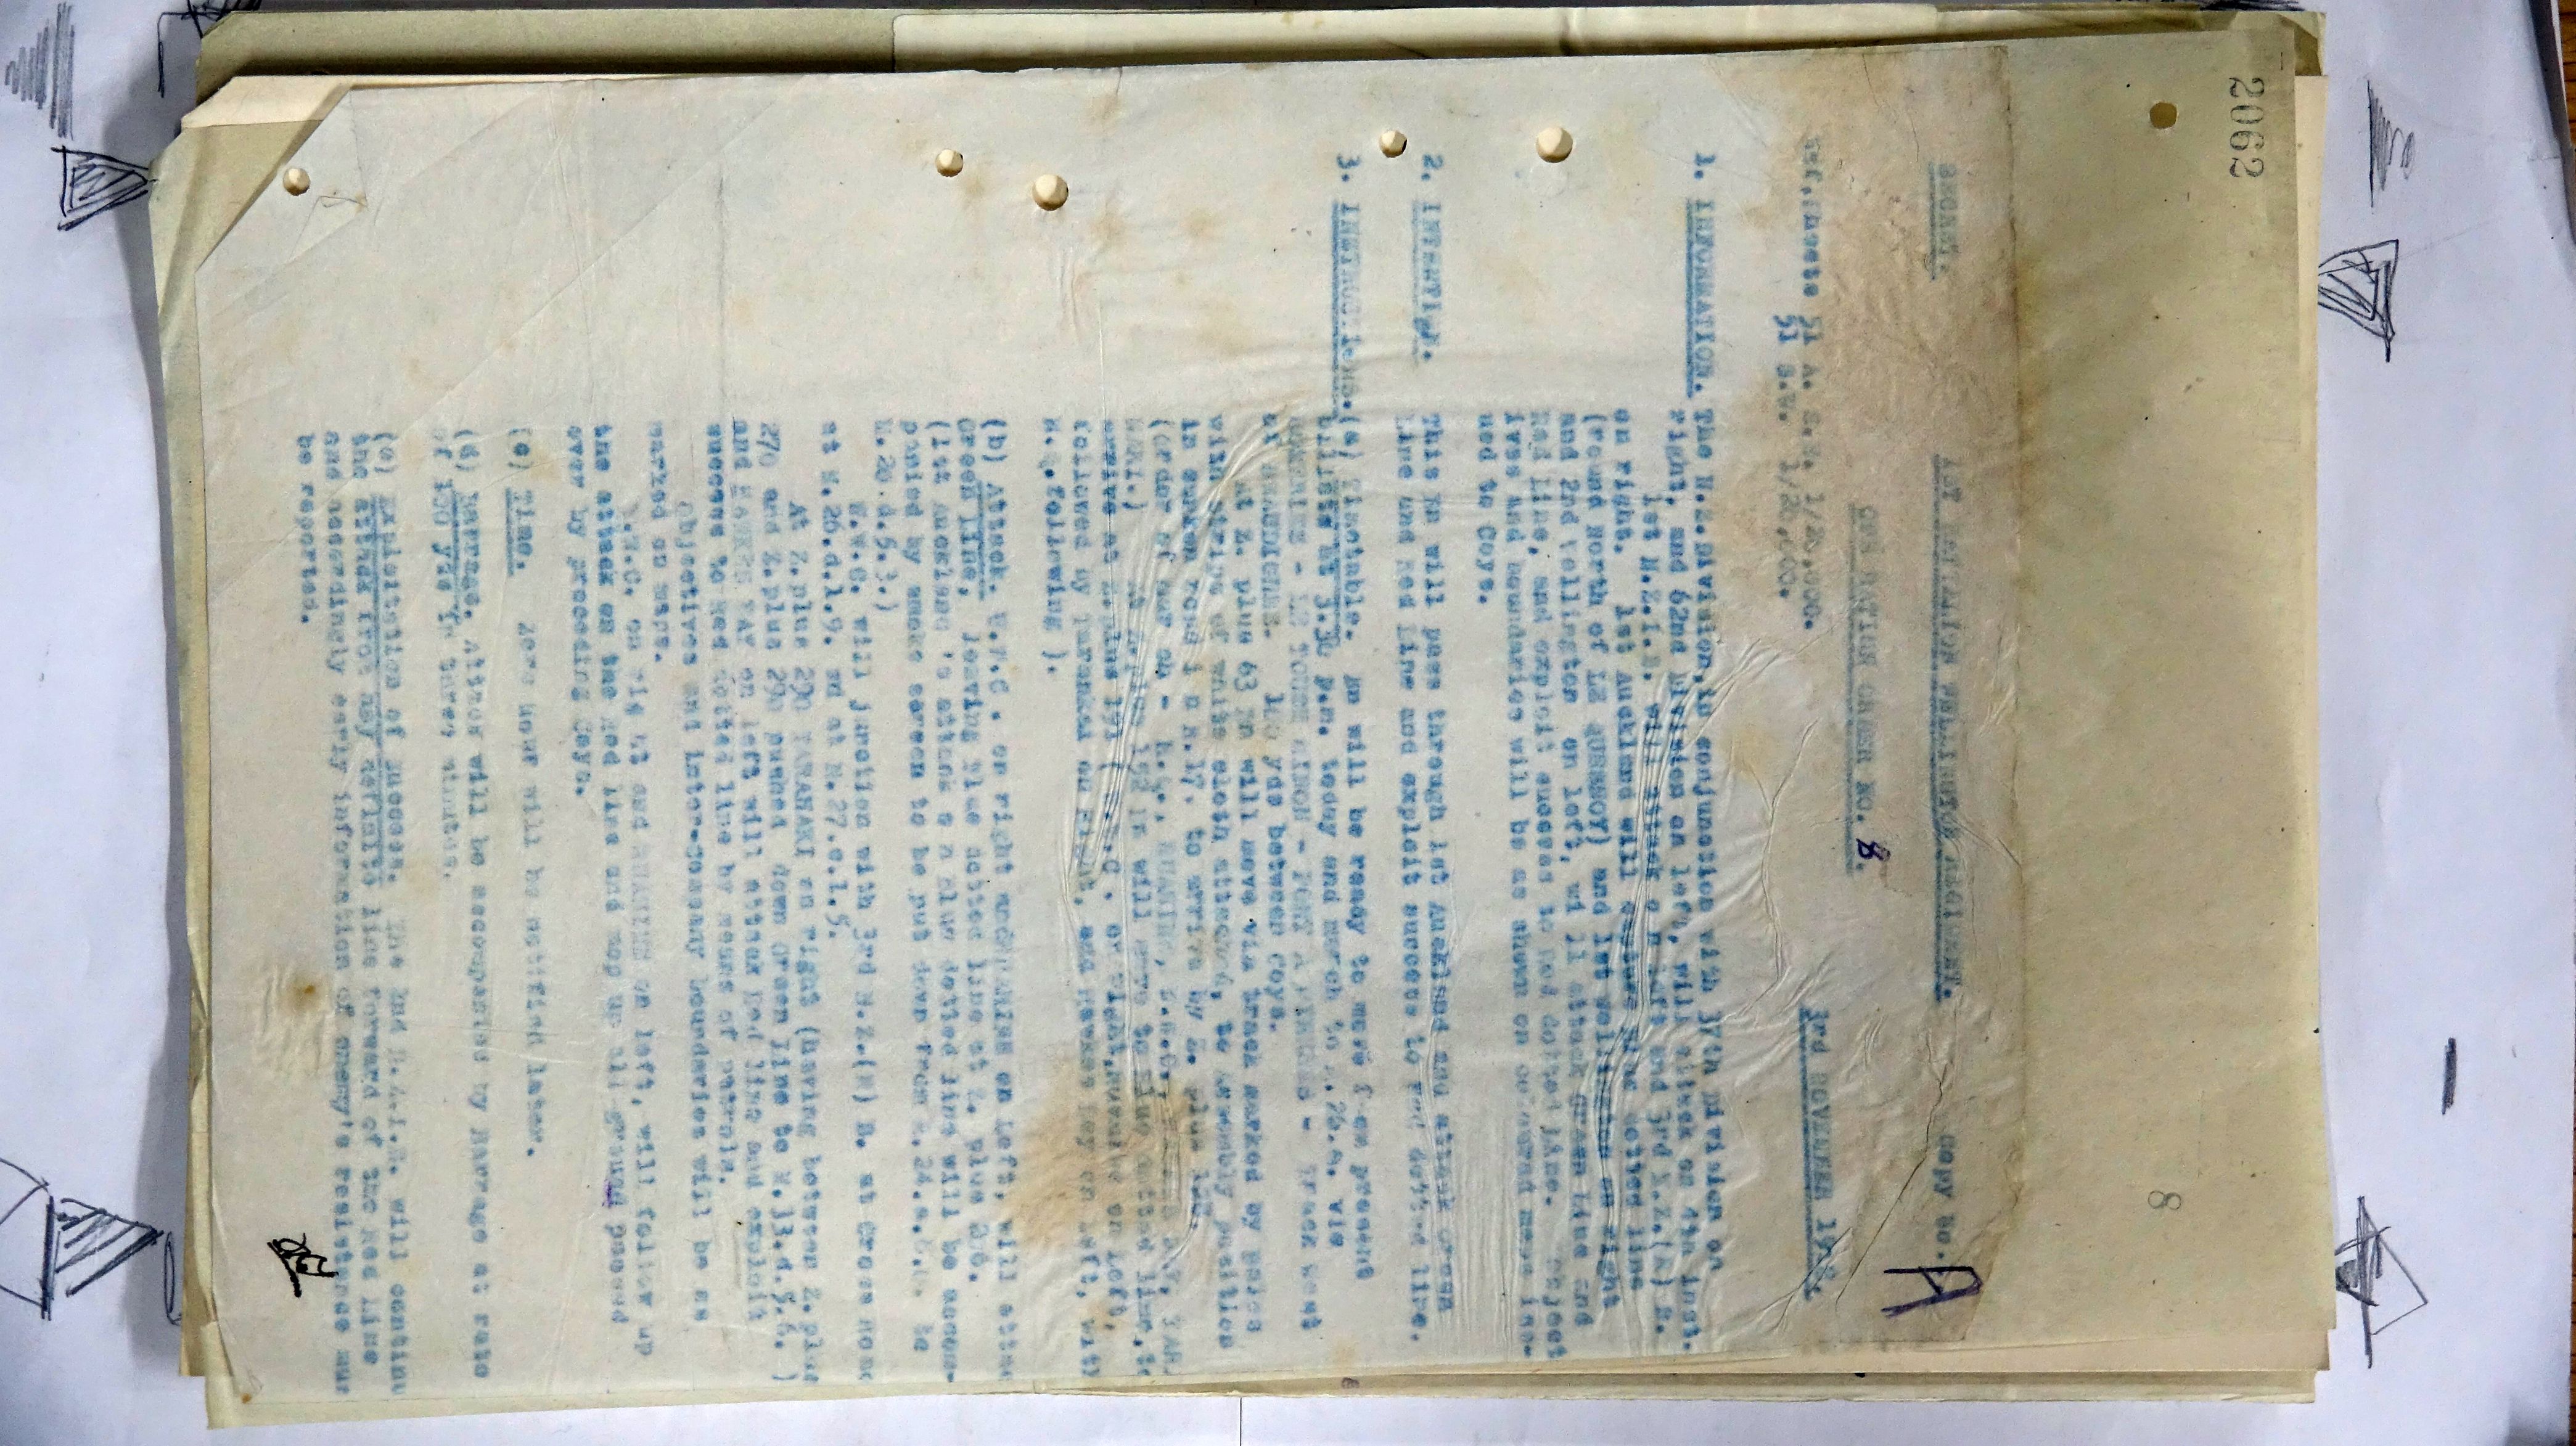 2062
8
SECRET.
1ST BATTALION WELLINGTON REGIMENT.
Copy No. 
OPERATION ORDER NO. 8.
3rd NOVEMBER
Ref. Sheets 51 A. S.E. 1/20,000.
51 S.W. 1/20,000.
1. INFORMATION. The N.Z. Division, in conjunction with 37th Division on
right, and 62nd Division on left, will attack on 4th inst.
1st N.Z.I.B. will attack on left and 3rd N.Z.(R) B.
on right. 1st Auckland will capture Blue dotted line
(round North of LE QUESNOY) and 1st Wellington on right
and 2nd Wellington on left, will attack Green Line and
Red Line, and exploit success to Red dotted line. Object
ives and boundaries will be as shown on coloured maps iss-
ued to Coys.
2. INTENTION. This Bn will pass through 1st Auckland and attack Green
Line and Red Line and exploit success to Red dotted line.
3. INSTRUCTIONS. (a) Timetable. Bn will be ready to move from present
billets at 3.30 p.m. today and march to via
Track west
at 100 yds between coys.
At Z. plus 63 Bn will move via track marked by poles
with strips of white cloth attached, to assembly position
in sunken road in R.17. to arrive by Z. plus
(order of march - H.Q., RUAHINE, W.W.C.,
At Z. plus Bn will move to Blue dotted line, to
arrive at Z. plus 191 ( W.W.C. on right, Ruahine on left,
followed by Taranaki on right, and Hawkes Bay on left, with
H.Q. following ).
(b) Attack. W.W.C. on right and RUAHINE on left, will attac
Green Line, leaving Blue dotted line at Z. plus
(1st Auckland's attack on Blue dotted line will be accom-
panied by smoke screen to be put down from to
W.W.C. will junction with 3rd N.Z.(R) B. at Cross road
at M.26.d.1.9. and at M.27.c.1.5.
At Z. plus 290 TARANAKI on right (having between Z. plus
270 and Z. plus 290 pushed down Green line to )
and HAWKES BAY on left will attack Red line and exploit
success to Red dotted line by means of patrols.
Objectives and inter-company boundaries will be as
marked on maps.
W.W.C. on right and RUAHINE on left, will follow up
the attack on the Red line and mop up all ground passed
over by preceding Coys.
(c) Time. Zero hour will be notified later.
(d) Barrage. Attack will be accompanied by Barrage at rate
of 100 yds in three minutes.
(e) Exploitation of success. The 2nd N.Z.I.B. will continu
the attack from any definite line forward of the Red line
and accordingly early information of enemy's resistance mus
be reported.